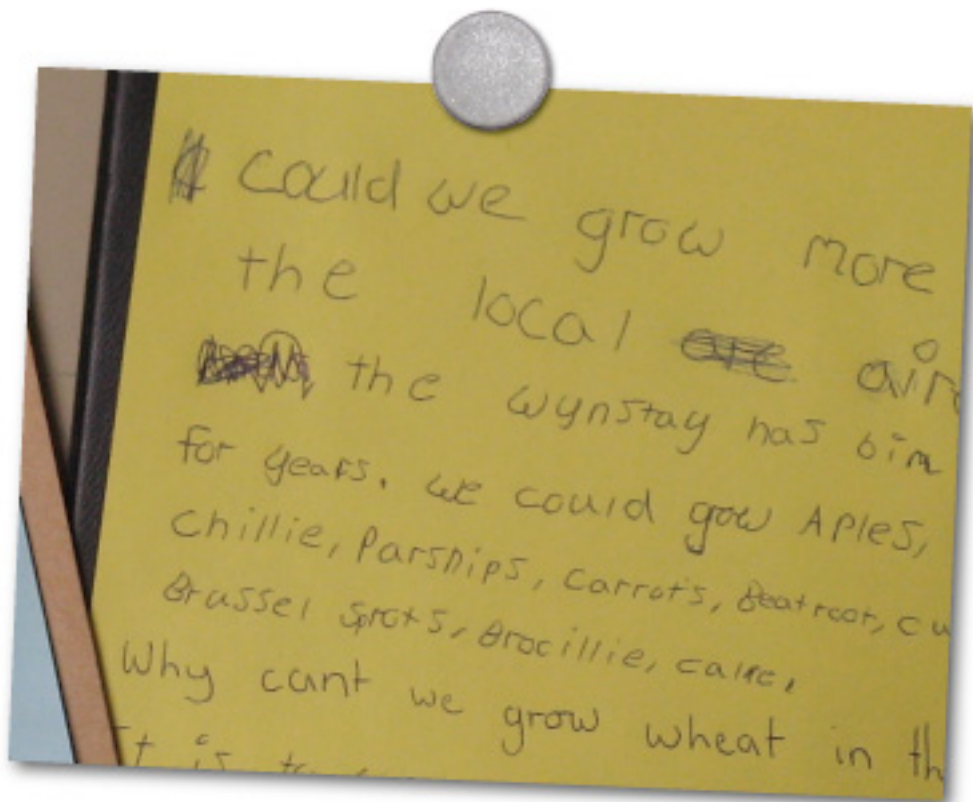 Could we grow more
the local
the wynstay has bin
for years. we could grow APles,
Chillie, Parsnips, carrots, Beatroot, cu
Brussel sprots, Brocillie, calke,
Why cant we grow wheat in th
t is